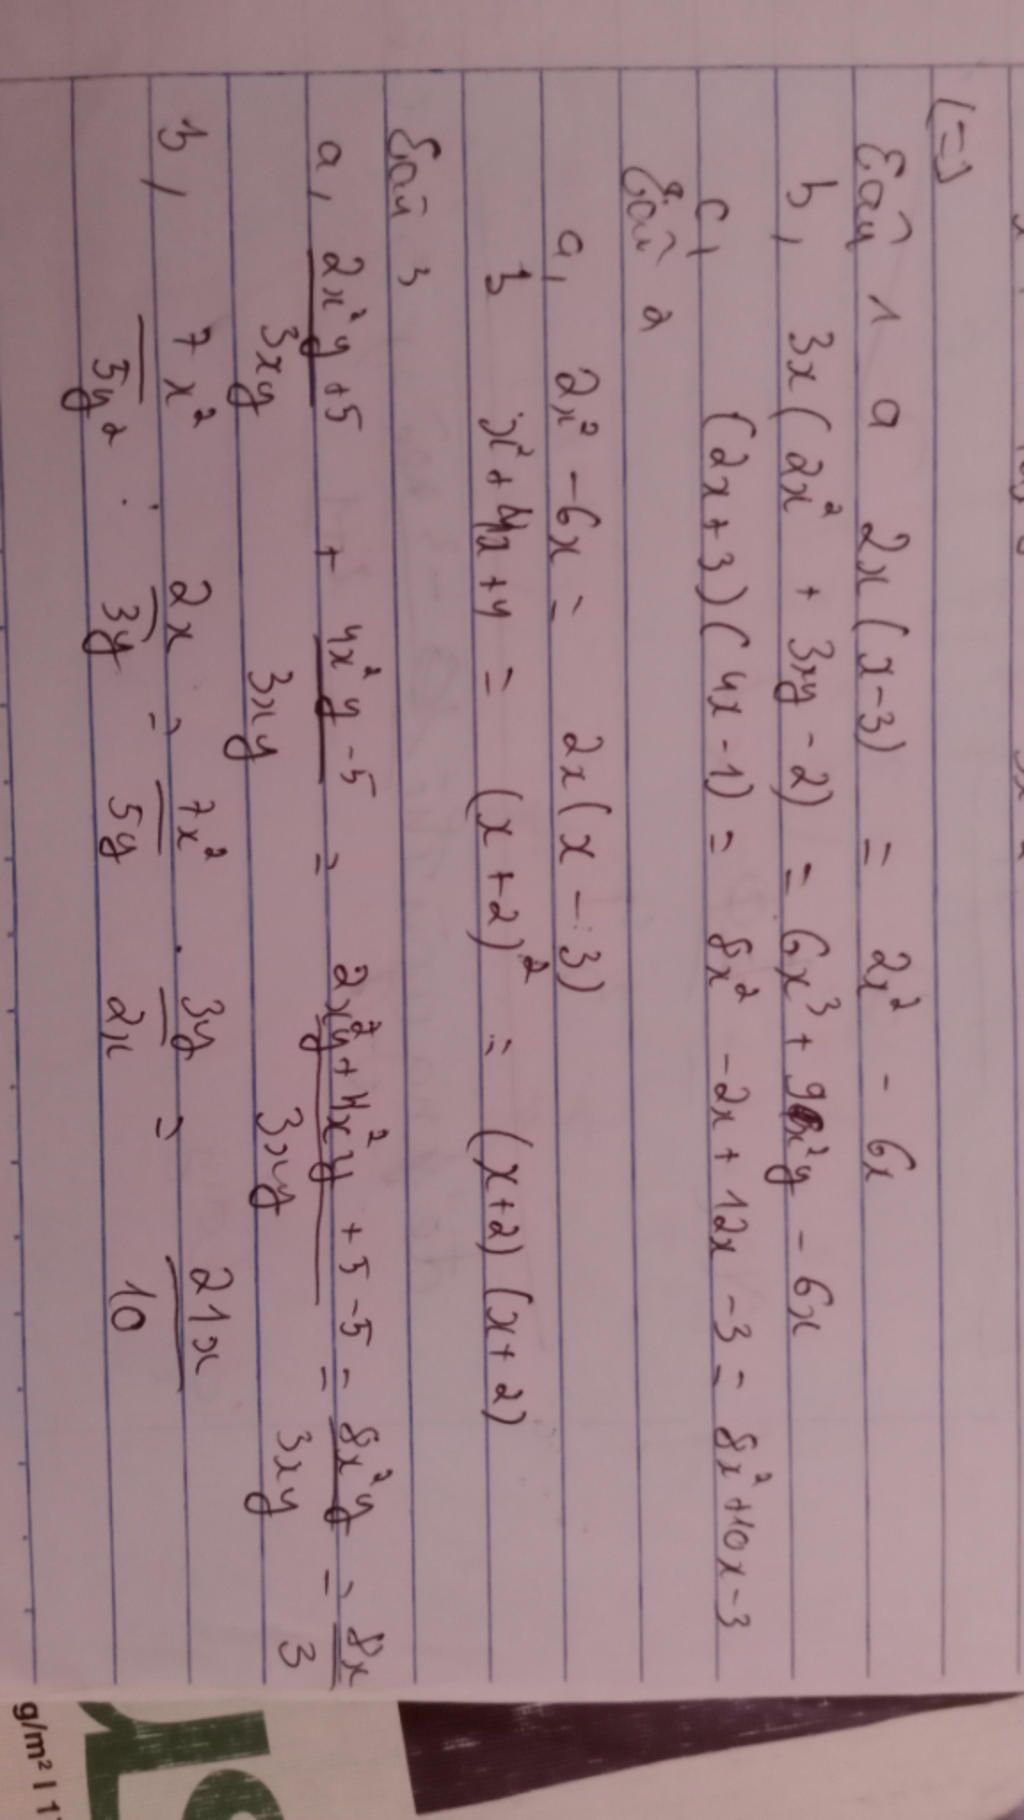 (=)
Câu 1 a 2x(x-3) = 2x² - 6x
b, 3x(2x² + 3xy - 2) = 6x³ + 9x²y - 6x
c, (2x+3)(4x-1) = 8x² -2x + 12x -3 = 8x²+10x-3
Câu 2
a, 2x² -6x = 2x(x-3)
b x²+4x+4 = (x+2)² = (x+2)(x+2)
Câu 3
a, 2x²y+5 + 4x²y-5 = 2x²y+4x²y+5-5 = 8x²y = 8x
3xy 3xy 3xy 3xy 3
b, 7x² : 2x = 7x² . 3y = 21x
5y² 3y 5y 2x 10
g/m² | 1